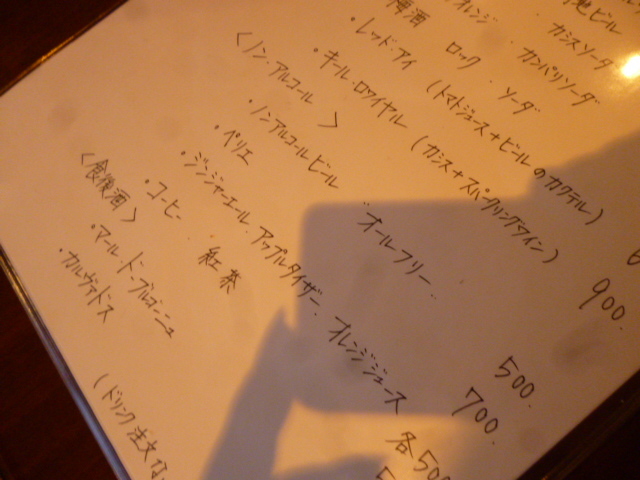 地ビール
オレンジ ・ カシスソーダ
梅酒 ロック ・ ソーダ ・ カンパリソーダ
・レッド・アイ (トマトジュース+ビールのカクテル)
・キール・ロワイヤル (カシス+スパークリングワイン) 900.
〈ノン・アルコール〉
・ノンアルコールビール "オールフリー" 500.
・ペリエ 700.
・ジンジャーエール. アップルタイザー. オレンジジュース 各500
・コーヒー ・ 紅茶
〈食後酒〉
・マール・ド・ブルゴーニュ
・カルヴァドス
(ドリンク注文は